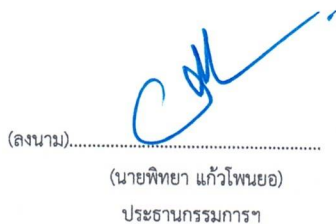 (ลงนาม)................................................
(นายพิทยา แก้วโพนยอ)
ประธานกรรมการฯ